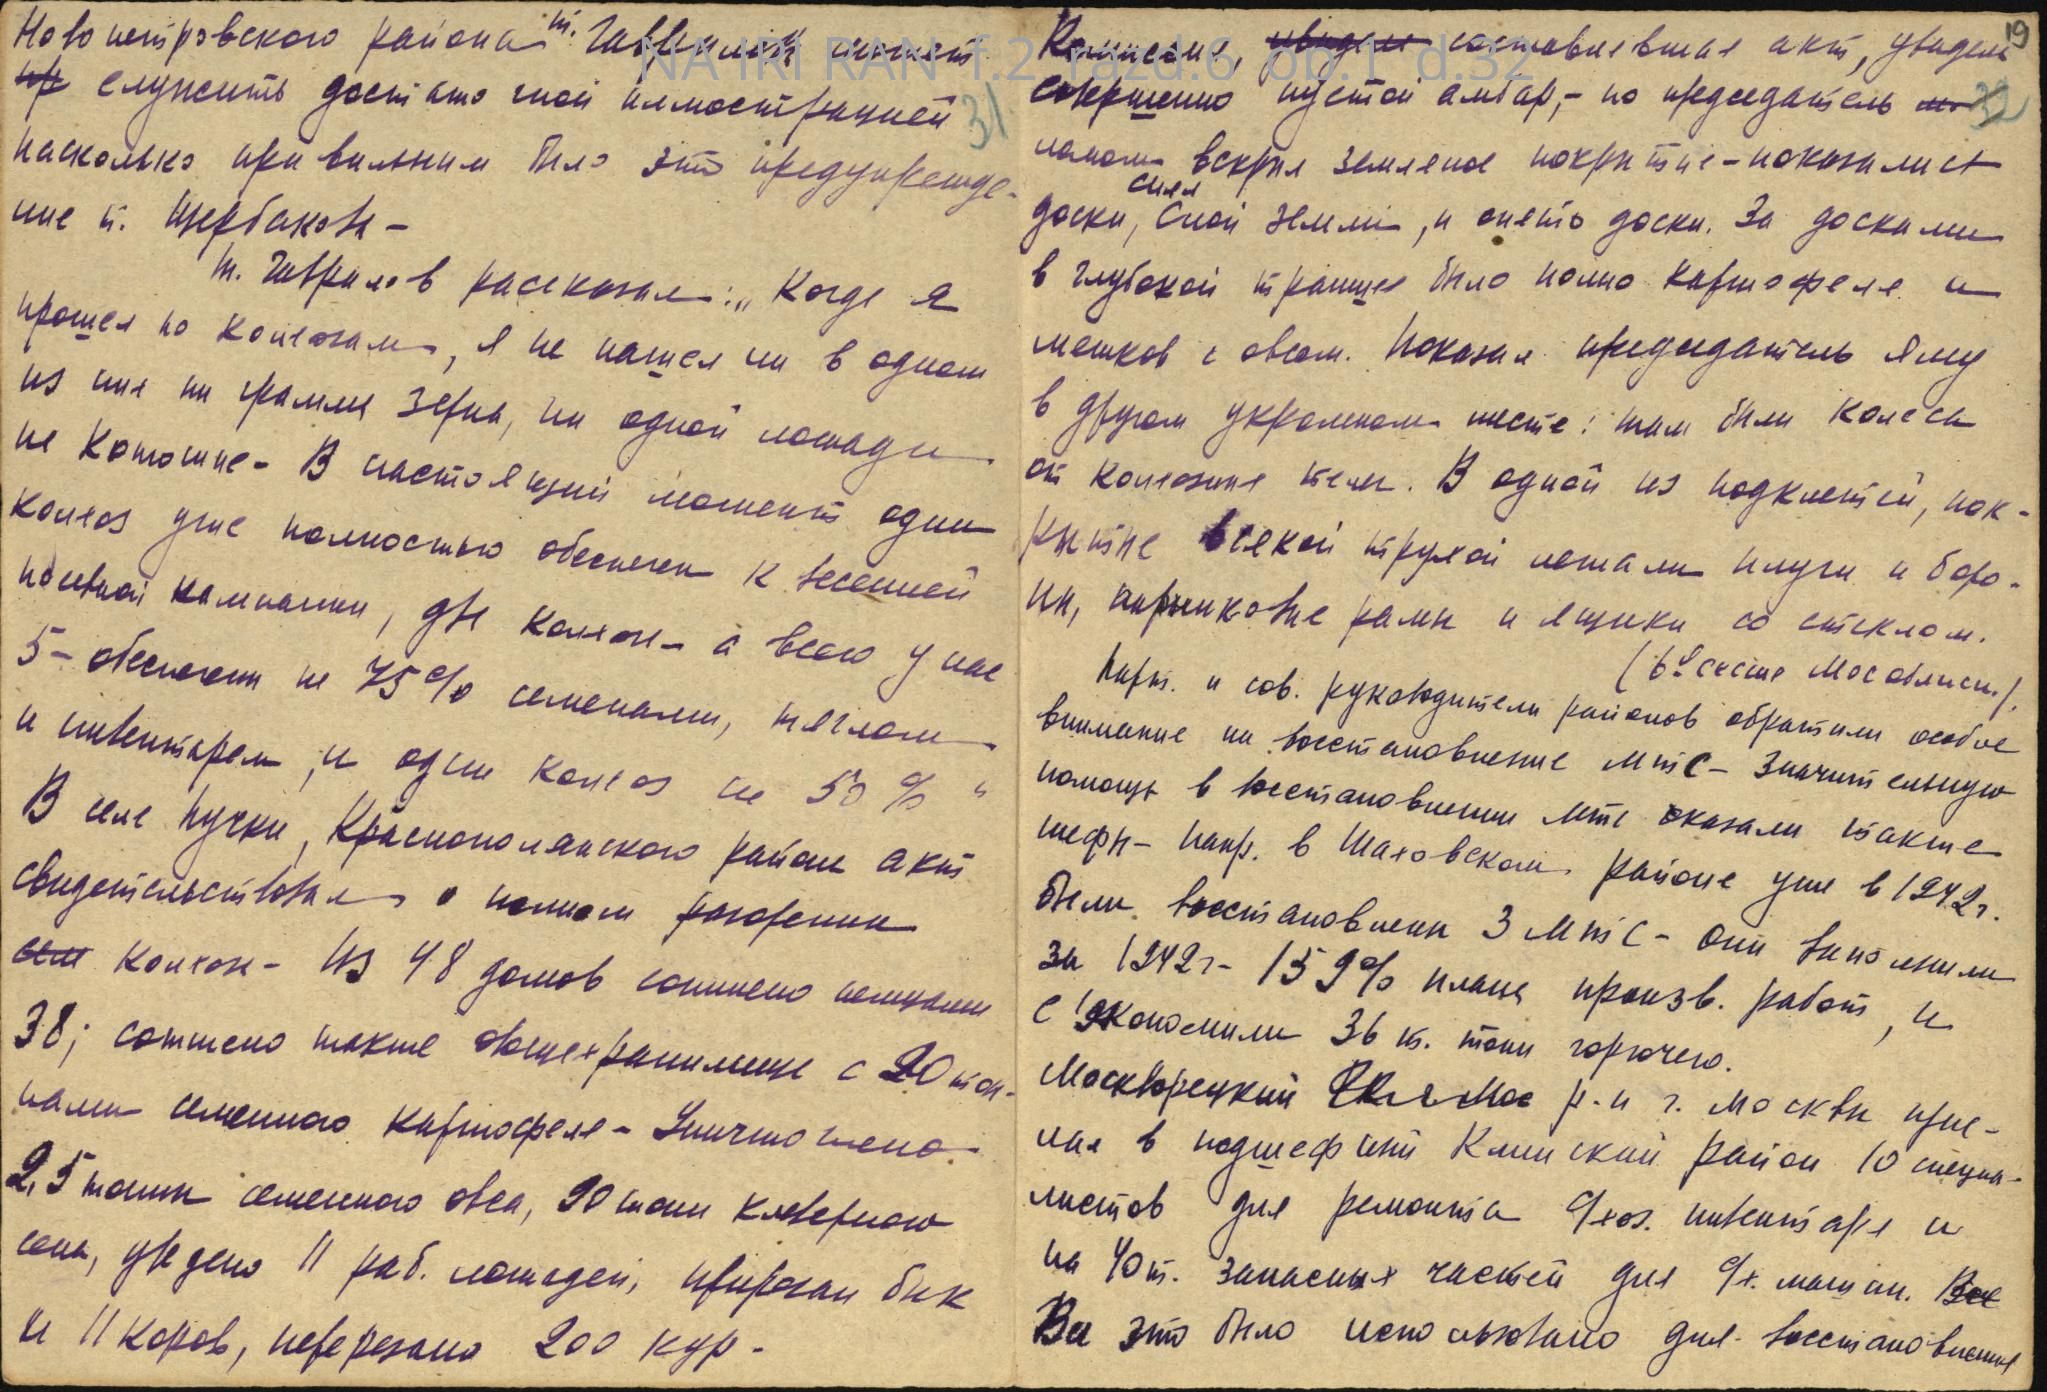 Новопетровского района т. Гаврилов может
пр служить достаточной иллюстрацией
31
насколько правильным было это предупрежде-
ние т. Щербакова –
т. Гаврилов рассказал: „Когда я
прошел по колхозам, я не нашел ни в одном
из них ни грамма зерна, ни одной лошади
на конюшне – В настоящий момент один
колхоз уже полностью обеспечен к весенней
посевной кампании, два колхоза – а всего у нас
5 – обеспечены на 75% семенами, тяглом
и инвентарем, и один колхоз на 50% "
В селе Пучки, Краснополянского района акт
свидетельствовал о полном разорении
колхоза – Из 48 домов сожжено немцами
38; сожжено также овощехранилище с 20 тон-
нами семенного картофеля – Уничтожено
2,5 тонны семенного овса, 20 тонн клеверного
сена, уведено 11 раб. лошадей, прирезан бык
и 11 коров, перерезано 200 кур –
19
Комиссия, увидела составлявшая акт, увидела
32
совершенно пустой амбар, – но председатель
ломом вскрыл земляное покрытие – показались
доски, слой земли, и опять доски. За досками
в глубокой траншее было полно картофеля и
мешков с овсом. Показал председатель яму
в другом укромном месте: там были колеса
от колхозных телег. В одной из подклетей, пок-
рытые всякой трухой лежали плуги и боро-
ны, парниковые рамы и ящики со стеклом.
(6ая сессия Мособлисп.).
Парт. и сов. руководители районов обратили особое
внимание на восстановление МТС – Значительную
помощь в восстановлении МТС оказали также
шефы – Напр. в Шаховском районе уже в 1942 г.
были восстановлены 3 МТС – Они выполнили
за 1942 г – 159% плана произв. работ, и
сэкономили 36 т. тонн горючего.
Москворецкий р-н г. Москвы прис-
лал в подшефный Клинский район 10 специа-
листов для ремонта с/хоз. инвентаря и
на 40 т. запасных частей для с/х. машин. Все
Все это было использовано для восстановления
NA IRI RAN f.2 razd.6 op.1 d.32